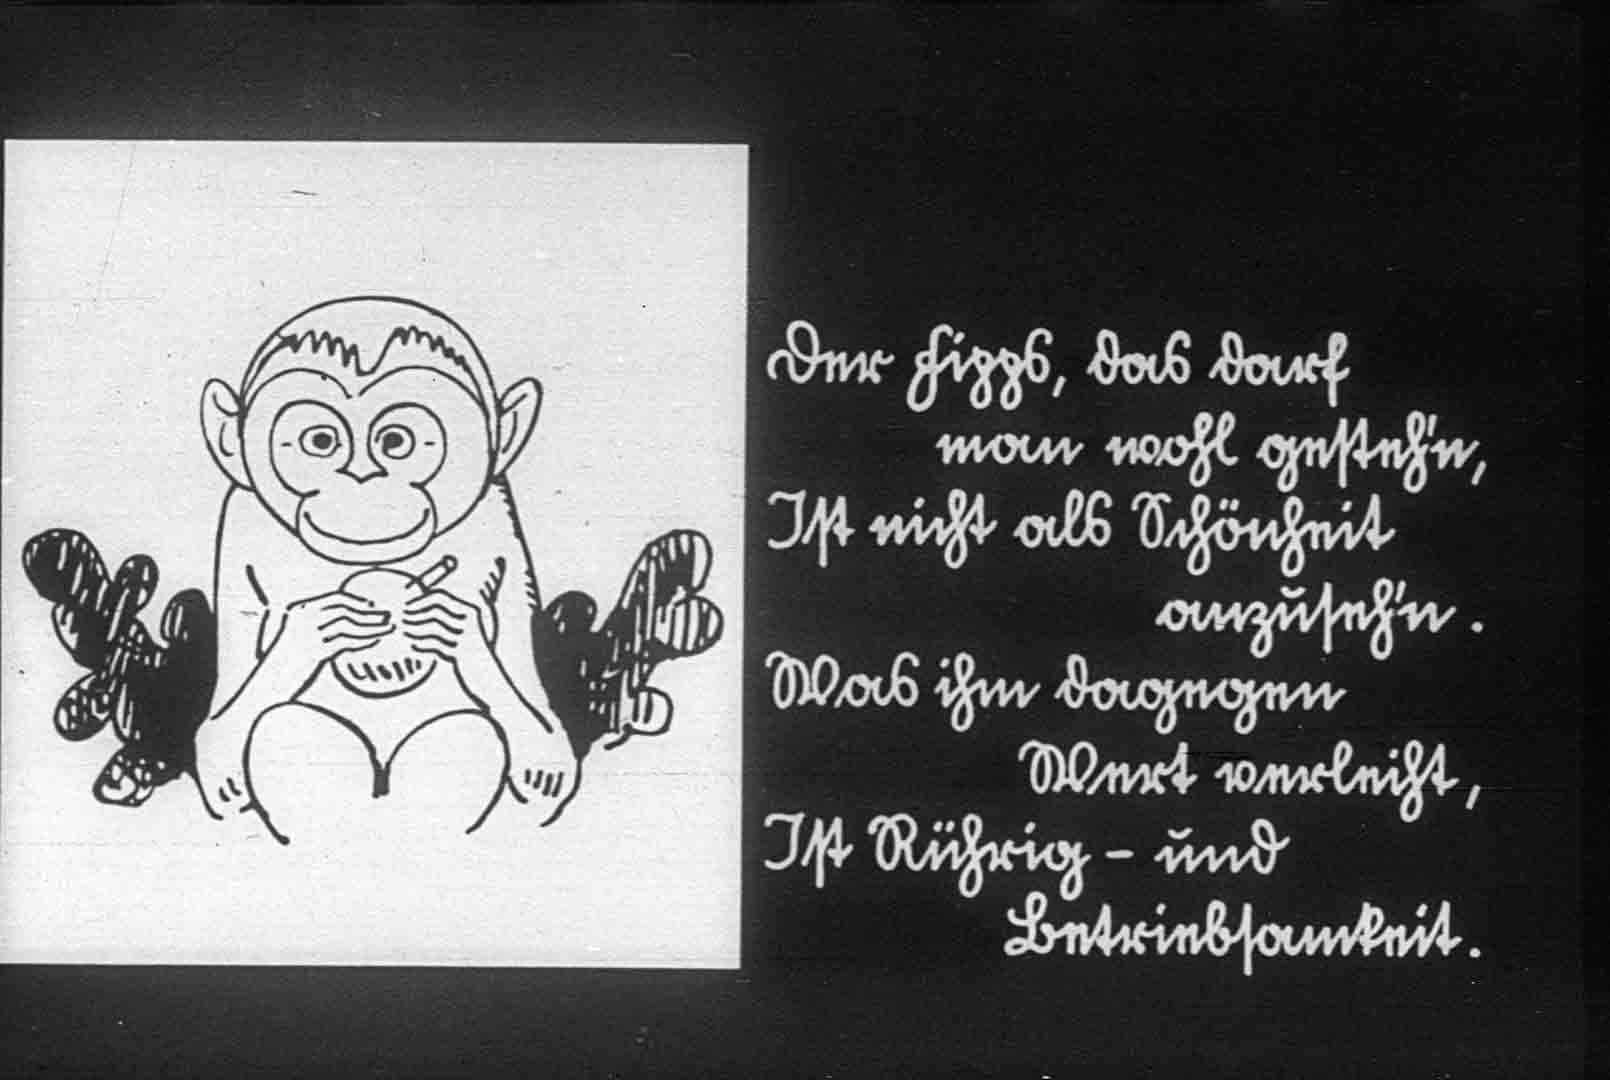 Der Fipps, das darf
man wohl gesteh'n,
Ist nicht als Schönheit
anzuseh'n.
Was ihm dagegen
Wert verleiht,
Ist Rührig - und
Betriebsamkeit.